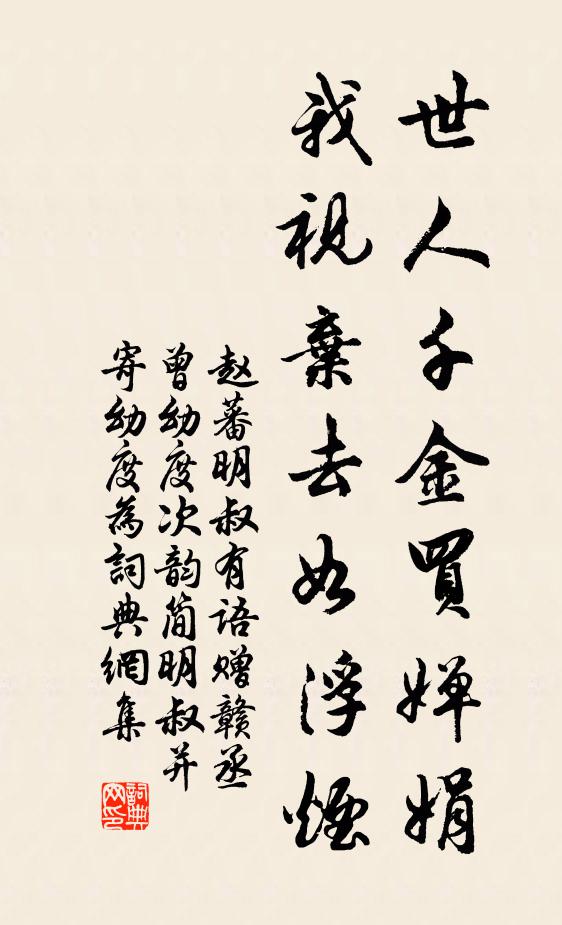 世人千金買嬋娟
我視棄去如浮煙
赵蕃明叔有语赠贛丞
曾幼度次韵简明叔并
寄幼度為詞典網集
詞典网印